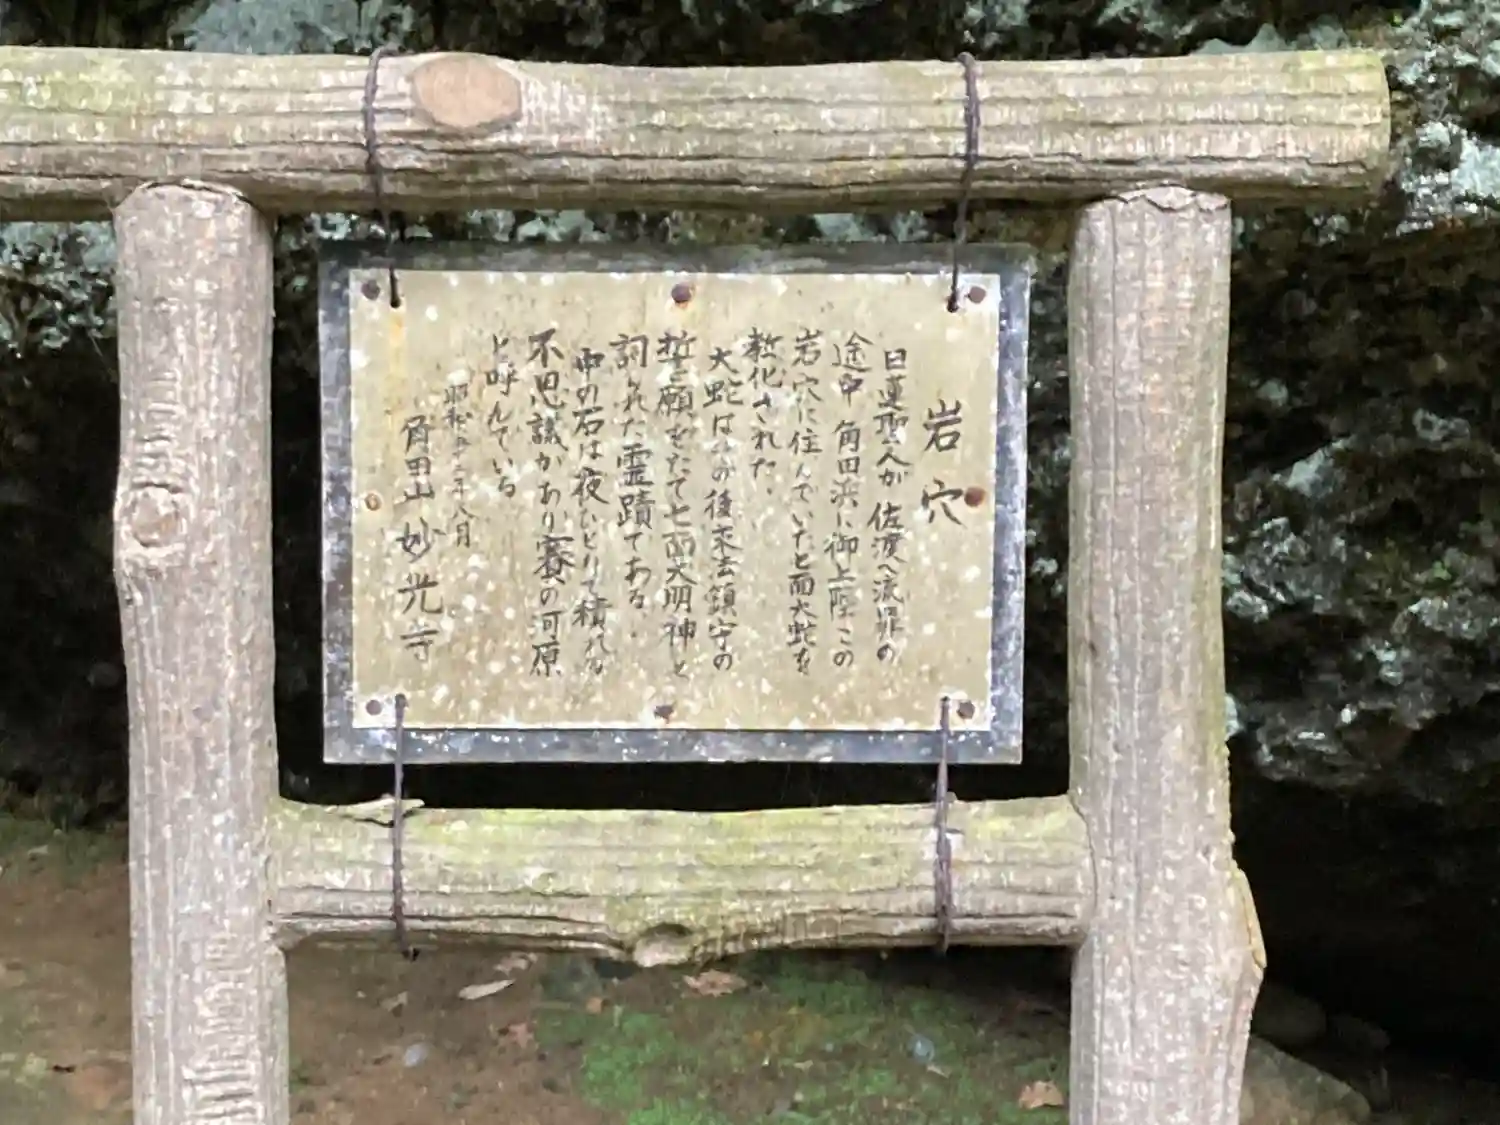 岩穴
日蓮聖人が 佐渡へ流罪の
途中 角田浜に御上陸 この
岩穴に住んでいた七面大蛇を
教化された。
大蛇はその後末法鎮守の
誓願をたて七面大明神と
祠られた霊蹟である。
中の石は夜ひとりで積れる
不思議があり賽の河原
と呼んでいる
昭和五十二年八月
角田山 妙光寺